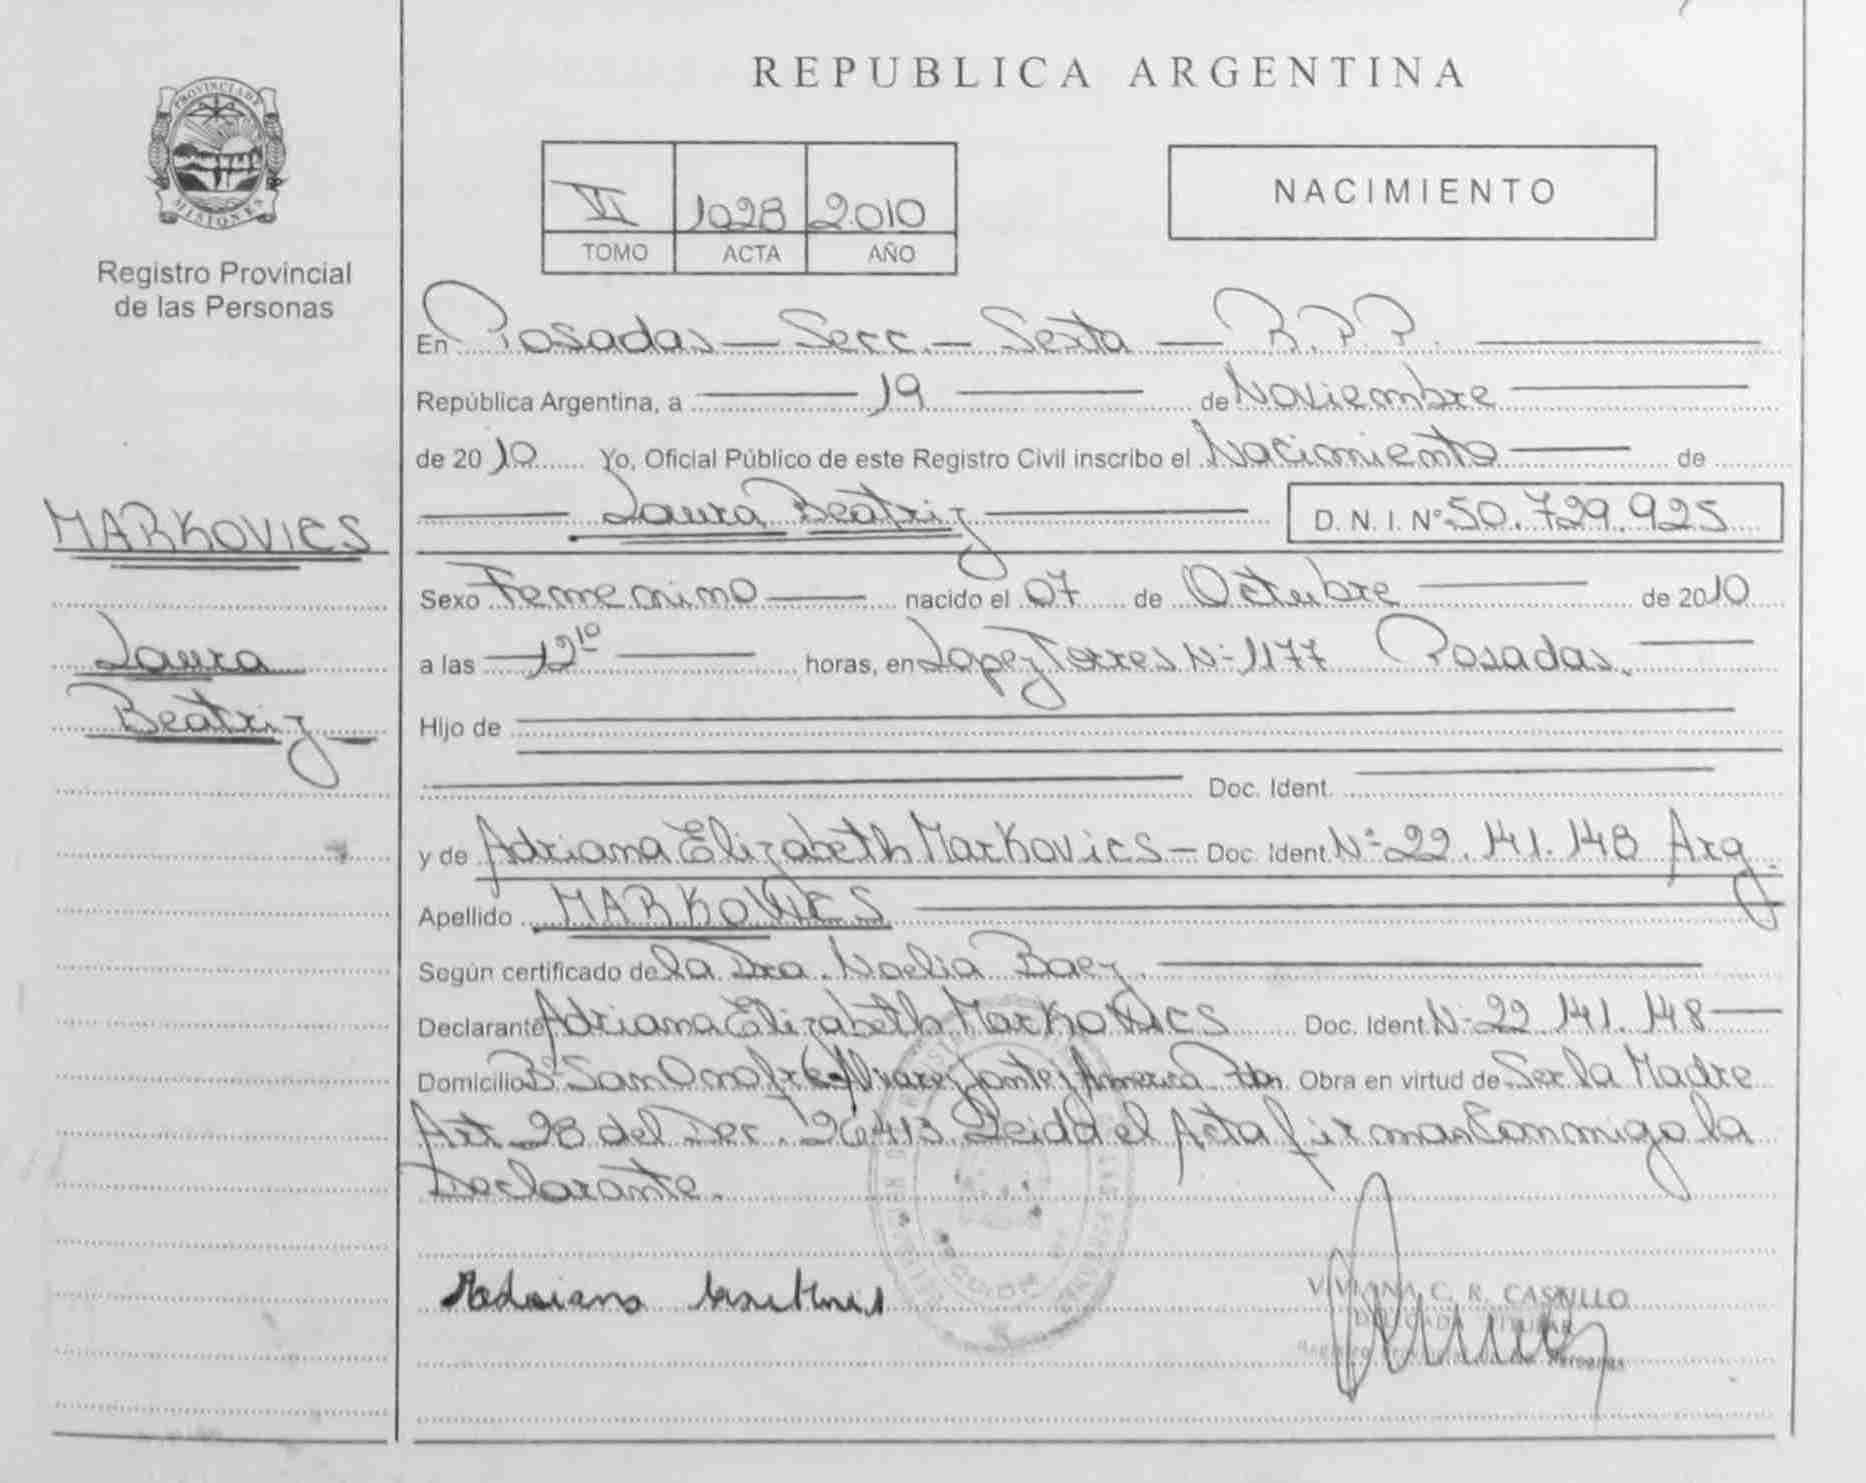 PROVINCIA DE
MISIONES
Registro Provincial
de las Personas
MARKOVICS
Laura
Beatriz
REPUBLICA ARGENTINA
VI 1028 2.010
TOMO ACTA AÑO
NACIMIENTO
En Posadas — Secc. — Sexta — R.P.P.
República Argentina, a 19 de Noviembre
de 2010 Yo, Oficial Público de este Registro Civil inscribo el Nacimiento de
Laura Beatriz D. N. I. Nº 50.729.925
Sexo Femenino nacido el 07 de Octubre de 2010
a las 12 10 horas, en Lopez Torres Nº 1177 Posadas.
Hijo de
Doc. Ident.
y de Adriana Elizabeth Markovics — Doc. Ident. Nº 22.141.148 Arg.
Apellido MARKOVICS
Según certificado de la Dra. Noelia Baez
Declarante Adriana Elizabeth Markovics Doc. Ident. Nº 22.141.148
Domicilio Bº San Onofre Alvarez Jontez America Obra en virtud de Ser la Madre
Art. 28 del Dec. 26413 Leida el Acta firman Conmigo la
Declarante.
VIVIANA C. R. CASTILLO
DELEGADA TITULAR